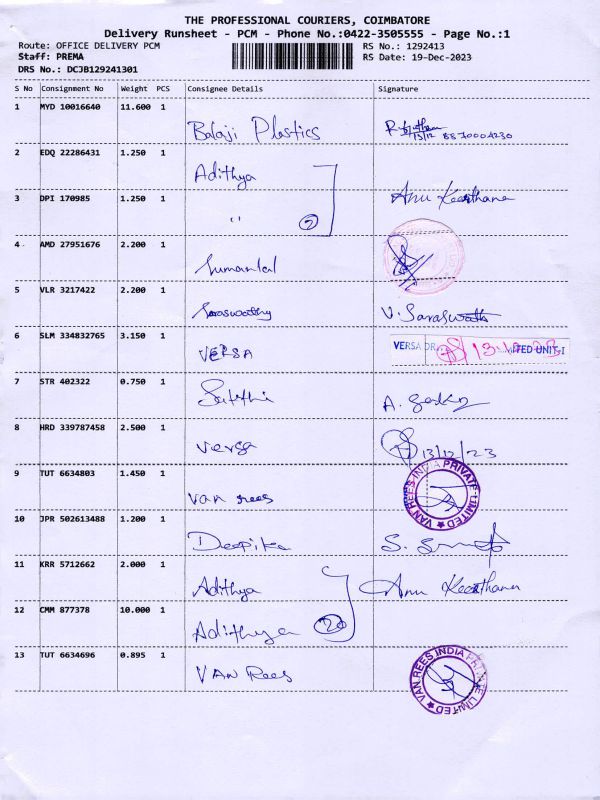 THE PROFESSIONAL COURIERS, COIMBATORE
Delivery Runsheet - PCM - Phone No.:0422-3505555 - Page No.:1
Route: OFFICE DELIVERY PCM RS No.: 1292413
Staff: PREMA RS Date: 19-Dec-2023
DRS No.: DCJB129241301
S No Consignment No Weight PCS Consignee Details Signature
1 MYD 10016640 11.600 1
Balaji Plastics 13/12 8870004230
2 EDQ 22286431 1.250 1
Adithya
3 DPI 170985 1.250 1 Anu Keerthana
" 2
4 AMD 27951676 2.200 1
Sumanlal
5 VLR 3217422 2.200 1
Saraswathy V. Saraswathi
6 SLM 334832765 3.150 1
VERSA VERSA LIMITED UNIT-I
7 STR 402322 0.750 1
A.
8 HRD 339787458 2.500 1
versa 13/12/23
9 TUT 6634803 1.450 1
van rees VAN REES INDIA PRIVATE LIMITED
10 JPR 502613488 1.200 1
Deepika S.
11 KRR 5712662 2.000 1
Adithya Anu Keerthana
12 CMM 877378 10.000 1
Adithya 20
13 TUT 6634696 0.895 1
VAN Rees VAN REES INDIA PRIVATE LIMITED